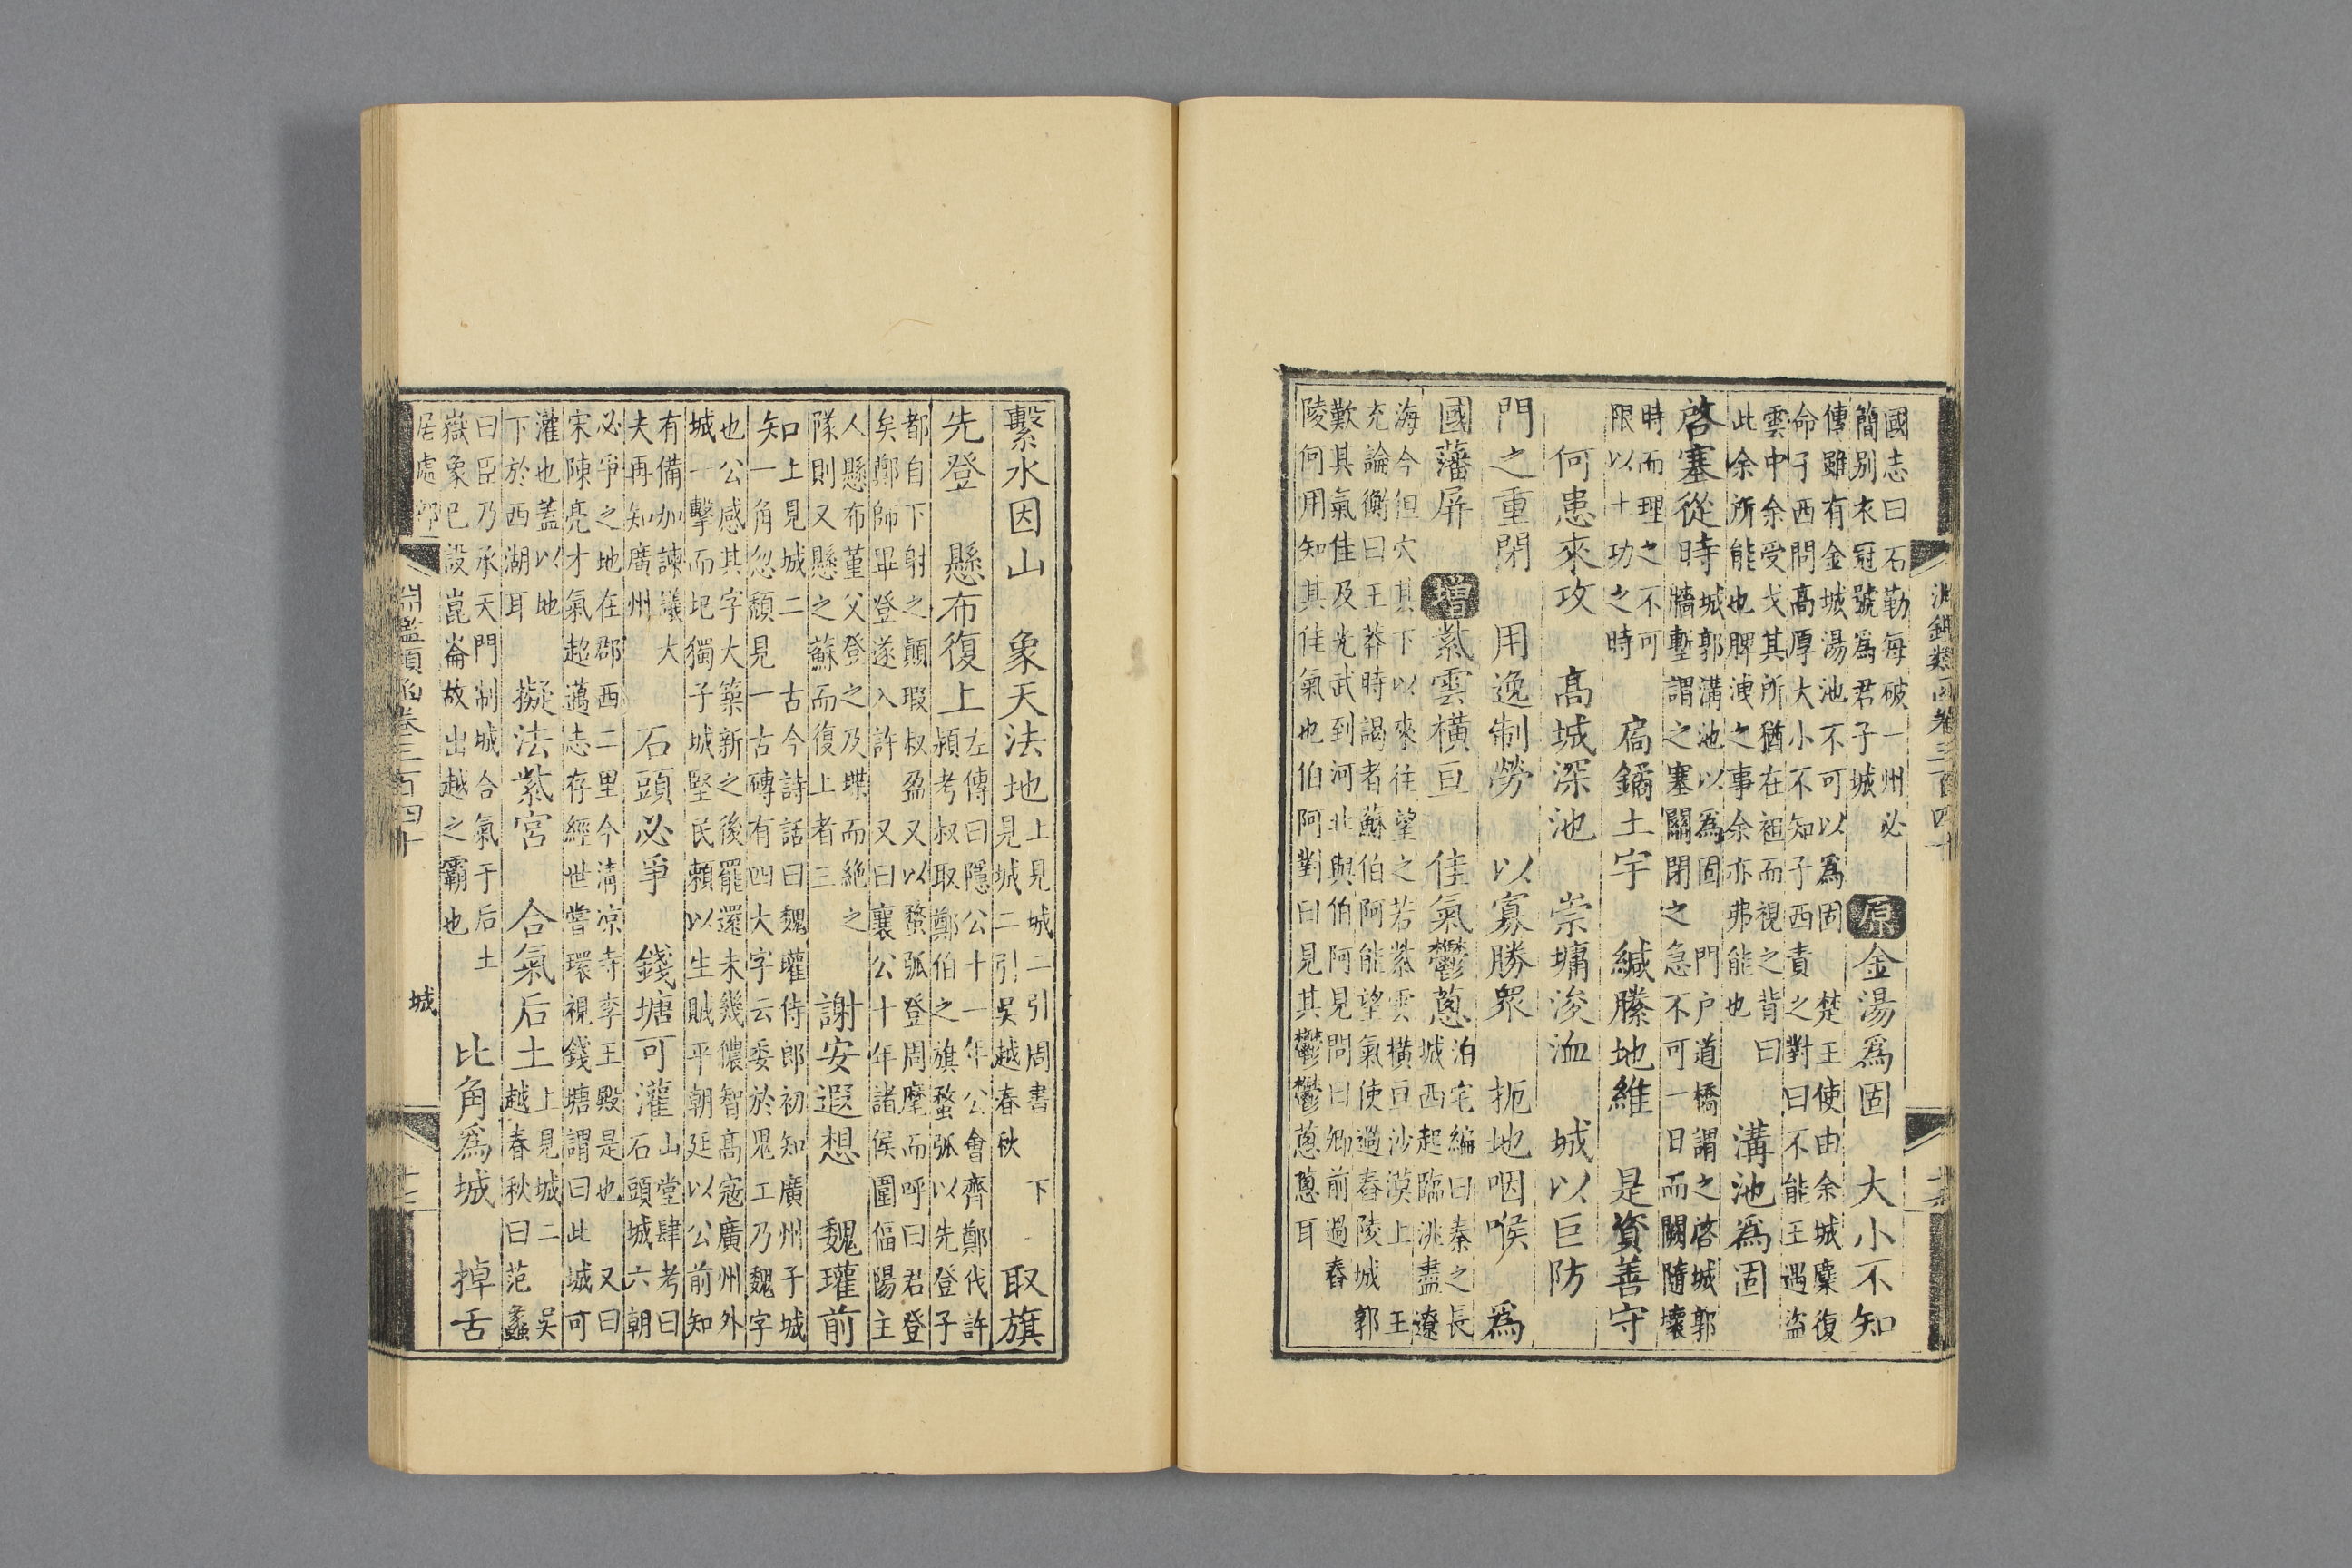 淵鑑類函卷三百四十
國志曰石勒每破一州必
簡别衣冠號為君子城
原金湯為固 大小不知
楚王使由余城麋復
命子西問高厚大小不知子西責之對曰不能王遇盜
傳雖有金城湯池不可以為固
雲中余受戈其所猶在袒而視之背曰
此余所能也脾洩之事余亦弗能也
溝池為固
啓塞從時
城郭溝池以為固
門户道橋謂之啓城郭
牆塹謂之塞闗閉之急不可一日而闕隨壞
時而理之不可
限以十功之時
扃鐍土宇 緘縢地維 是資善守
何患來攻 髙城深池 崇墉浚洫 城以巨防
門之重閉 用逸制勞 以寡勝衆 扼地咽喉 為
國藩屏 增紫雲橫亘 佳氣鬱蔥
泊宅編曰秦之長
城西起臨洮盡遼
海今但穴其下以來往望之若紫雲橫亘沙漠上 王
充論衡曰王莽時謁者蘇伯阿能望氣使過舂陵城郭
歎其氣佳及光武到河北與伯阿見問曰卿前過舂
陵何用知其佳氣也伯阿對曰見其鬱鬱蔥蔥耳
繫水因山 象天法地
上見城二引周書 下
見城二引吳越春秋
取旗
先登 懸布復上
左傳曰隱公十一年公會齊鄭伐許
潁考叔取鄭伯之旗蝥弧以先登子
都自下射之顛瑕叔盈又以蝥弧登周麾而呼曰君登
矣鄭師畢登遂入許 又曰襄公十年諸侯圍偪陽主
人懸布堇父登之及堞而絕之
隊則又懸之蘇而復上者三
謝安遐想 魏瓘前
知
上見城二 古今詩話曰魏瓘侍郎初知廣州子城
一角忽頹見一古磚有四大字云委於鬼工乃魏字
也公感其字大築新之後罷還未幾儂智高寇廣州外
城一擊而圮獨子城堅民賴以生賊平朝廷以公前知
有備加諫議大
夫再知廣州
石頭必爭 錢塘可灌
山堂肆考曰
石頭城六朝
必爭之地在郡西二里今清凉寺李王殿是也 又曰
宋陳亮才氣超邁志存經世嘗環視錢塘謂曰此城可
灌也蓋以地
下於西湖耳
擬法紫宮 合氣后土
上見城二 吳
越春秋曰范蠡
曰臣乃承天門制城合氣于后土
嶽象已設崑崙故出越之霸也
比角為城 掉舌
居處部
城
淵鑑類函卷三百四十
十七